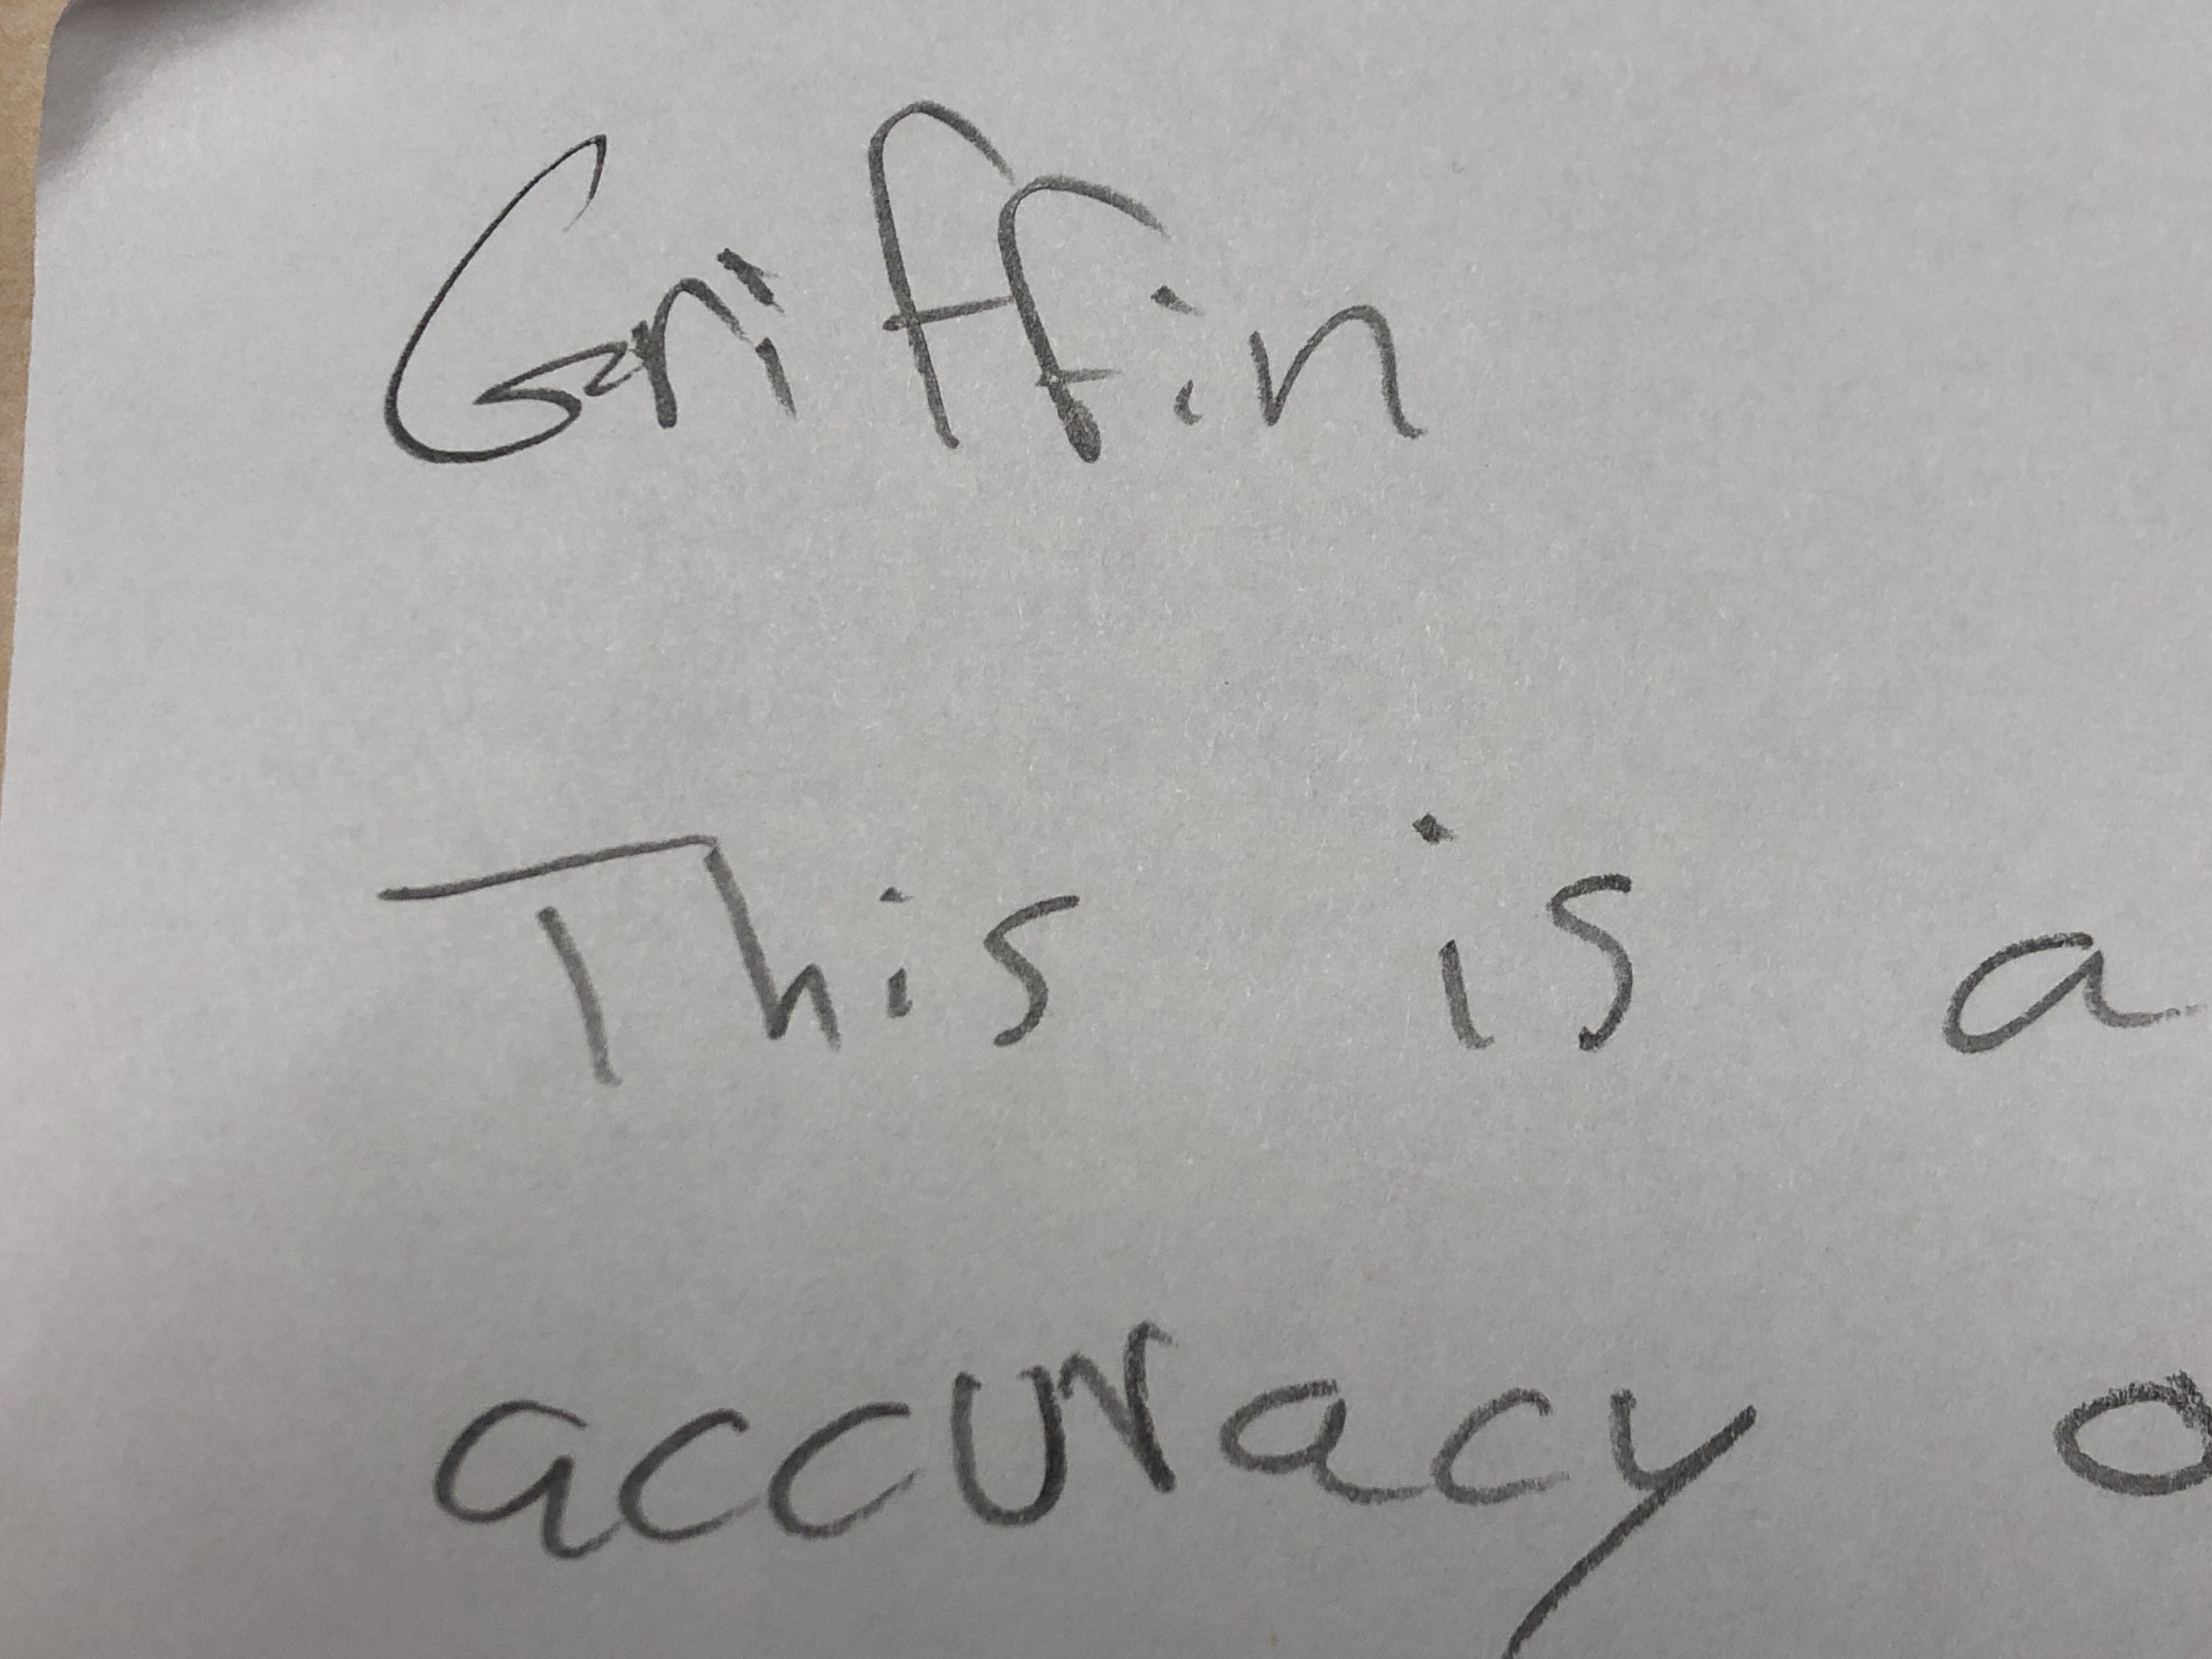 Griffin
This is a
accuracy o